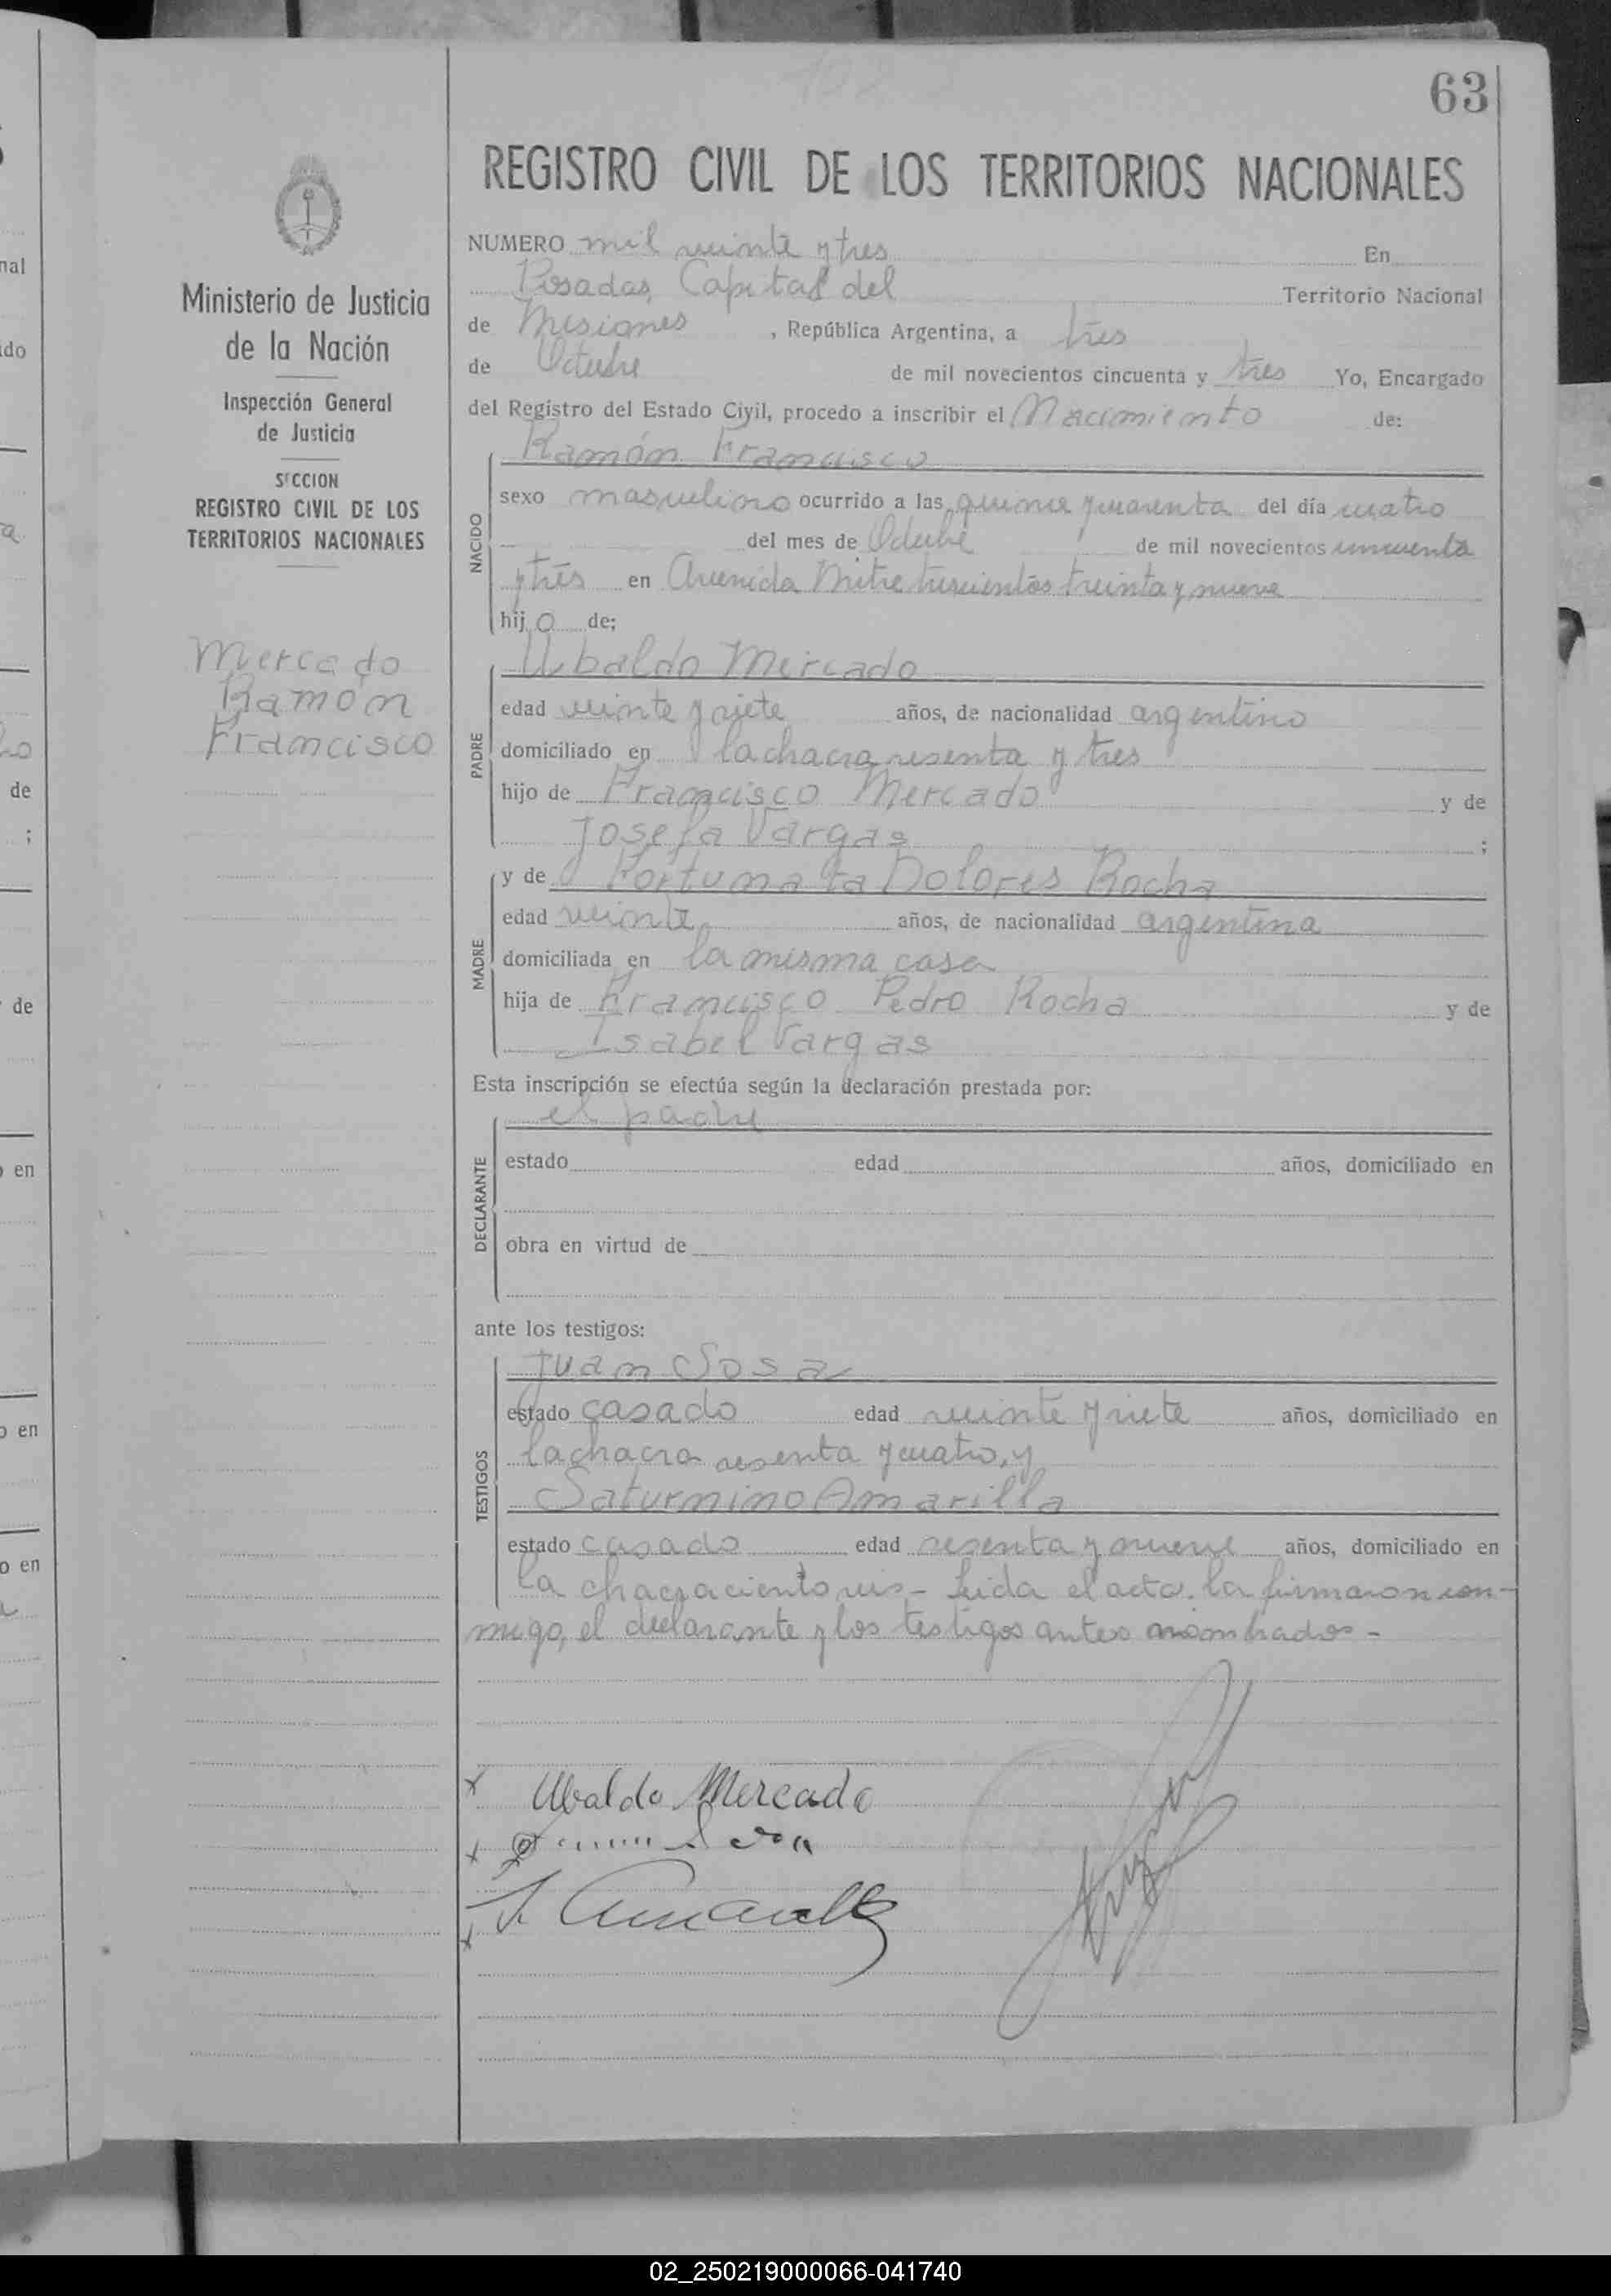 63
REGISTRO CIVIL DE LOS TERRITORIOS NACIONALES
Ministerio de Justicia
de la Nación
Inspección General
de Justicia
SECCION
REGISTRO CIVIL DE LOS
TERRITORIOS NACIONALES
Mercado
Ramón
Francisco
NUMERO mil veinte y tres En
Posadas, Capital del Territorio Nacional
de Misiones, República Argentina, a tres
de Octubre de mil novecientos cincuenta y tres Yo, Encargado
del Registro del Estado Civil, procedo a inscribir el Nacimiento de:
Ramón Francisco
NACIDO
sexo masculino ocurrido a las quince y cuarenta del día cuatro
del mes de Octubre de mil novecientos cincuenta
y tres en Avenida Mitre trescientos treinta y nueve
hijo de;
Ubaldo Mercado
PADRE
edad veinte y siete años, de nacionalidad argentino
domiciliado en la chacra sesenta y tres
hijo de Francisco Mercado y de
Josefa Vargas ;
y de Fortunata Dolores Rocha
MADRE
edad veinte años, de nacionalidad argentina
domiciliada en la misma casa
hija de Francisco Pedro Rocha y de
Isabel Vargas
Esta inscripción se efectúa según la declaración prestada por:
el padre
DECLARANTE
estado edad años, domiciliado en
obra en virtud de
ante los testigos:
Juan Sosa
TESTIGOS
estado casado edad veinte y siete años, domiciliado en
la chacra sesenta y cuatro, y
Saturnino Amarilla
estado casado edad sesenta y nueve años, domiciliado en
la chacra ciento seis- Leida el acta. la firmaron con-
migo, el declarante y los testigos antes nombrados-
x Ubaldo Mercado
x
x S. Amarilla
02_250219000066-041740